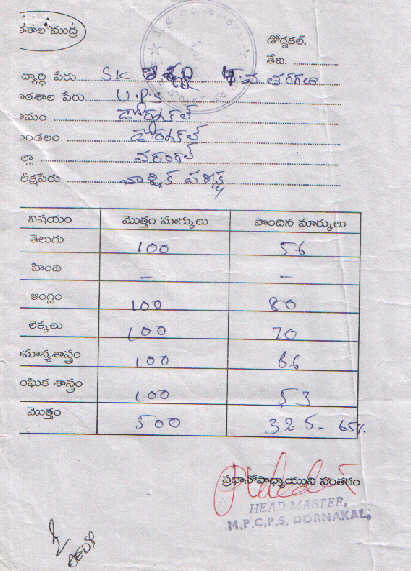 డోర్నకల్.
తేది.
ద్యార్థి పేరు Sk
ఠశాల పేరు U.P.S
ామం డోర్నకల్
ండలం డోర్నకల్
్లా వరంగల్
రీక్షపేరు వార్షిక పరీక్ష
విషయం మొత్తం మార్కులు పొందిన మార్కులు
తెలుగు 100 56
హింది - -
ఆంగ్లం 100 80
లెక్కలు 100 70
మాన్యశాస్త్రం 100 66
ంఘిక శాస్త్రం 100 53
మొత్తం 500 325- 65%
ప్రధానోపాధ్యాయుని సంతకం
HEAD MASTER,
M.P.C.P.S. DORNAKAL,